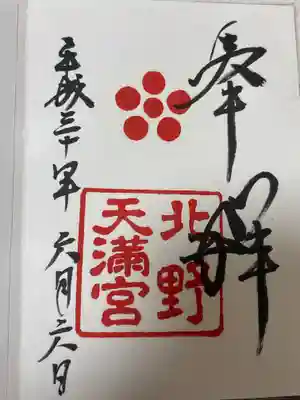 奉拝
北野
天満宮
平成三十年六月二六日